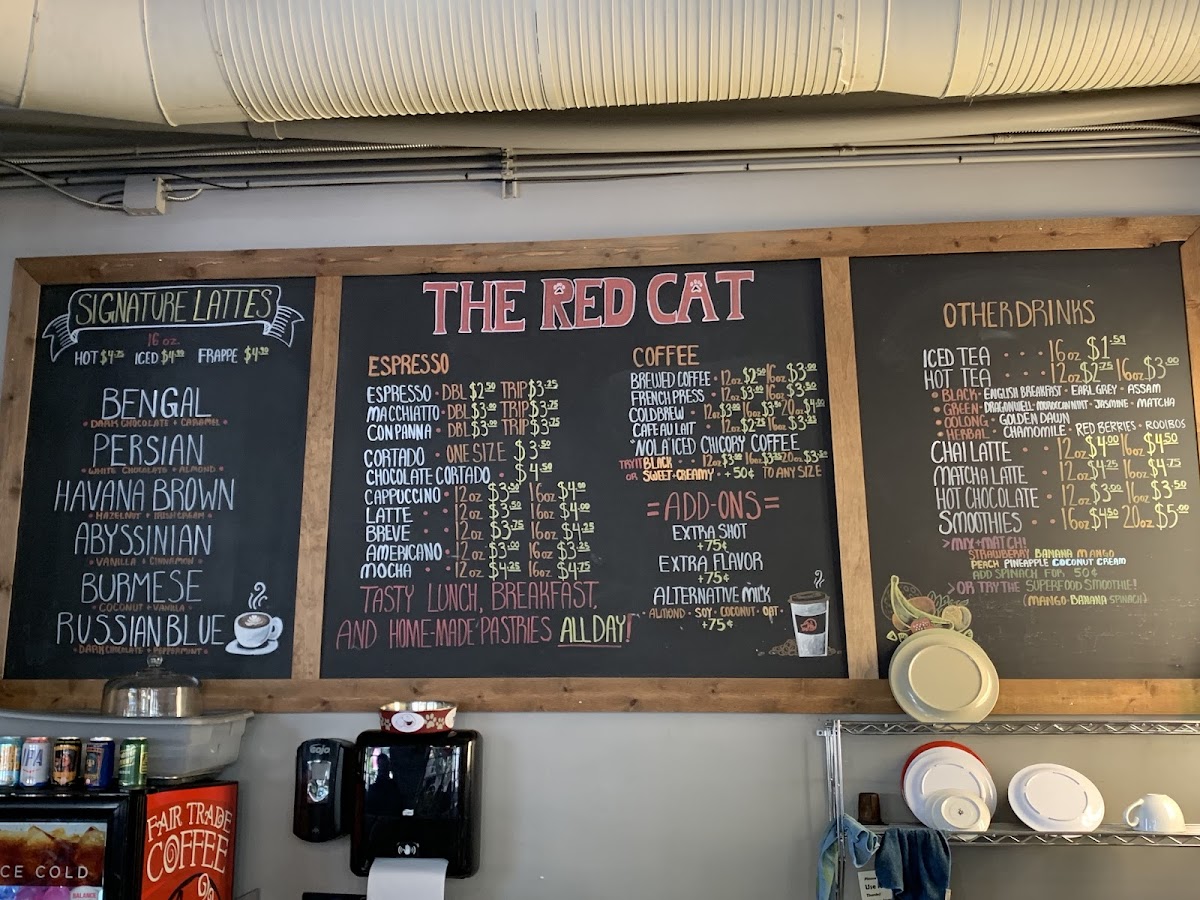 SIGNATURE LATTES
16 oz.
HOT $4.75 ICED $4.99 FRAPPE $4.99
BENGAL
• DARK CHOCOLATE + CARAMEL •
PERSIAN
• WHITE CHOCOLATE + ALMOND •
HAVANA BROWN
• HAZELNUT + IRISH CREAM •
ABYSSINIAN
• VANILLA + CINNAMON •
BURMESE
• COCONUT + VANILLA •
RUSSIAN BLUE
• DARK CHOCOLATE + PEPPERMINT •
THE RED CAT
ESPRESSO
ESPRESSO • DBL $2.50 TRIP $3.25
MACCHIATO • DBL $3.00 TRIP $3.75
CON PANNA • DBL $3.00 TRIP $3.75
CORTADO • ONE SIZE $3.50
CHOCOLATE CORTADO • $4.50
CAPPUCCINO • 12oz $3.50 16oz $4.00
LATTE • • 12oz $3.50 16oz $4.00
BREVE • • 12oz $3.75 16oz $4.25
AMERICANO • 12oz $3.00 16oz $3.25
MOCHA • • 12oz $4.25 16oz $4.75
TASTY LUNCH, BREAKFAST,
AND HOME-MADE PASTRIES ALL DAY!
COFFEE
BREWED COFFEE • 12oz $2.50 16oz $3.00
FRENCH PRESS • 12oz $3.00 16oz $3.50
COLD BREW • 12oz $3.00 16oz $3.50 20oz $4.00
CAFE AU LAIT • 12oz $2.75 16oz $3.25
*NOLA ICED CHICORY COFFEE
TRY IT BLACK • • 12oz $3.00 16oz $3.25 20oz $3.50
OR SWEET+CREAMY • + 50¢ TO ANY SIZE
=ADD-ONS=
EXTRA SHOT
+75¢
EXTRA FLAVOR
+75¢
ALTERNATIVE MILK
• ALMOND • SOY • COCONUT • OAT •
+75¢
OTHER DRINKS
ICED TEA • • • 16oz $1.59
HOT TEA • • • 12oz $2.75 16oz $3.00
• BLACK • ENGLISH BREAKFAST • EARL GREY • ASSAM
• GREEN • DRAGONWELL • MOROCCAN MINT • JASMINE • MATCHA
• OOLONG • GOLDEN DAWN
• HERBAL • CHAMOMILE • RED BERRIES • ROOIBOS
CHAI LATTE • • 12oz $4.00 16oz $4.50
MATCHA LATTE • 12oz $4.25 16oz $4.75
HOT CHOCOLATE • 12oz $3.00 16oz $3.50
SMOOTHIES • • 16oz $4.50 20oz $5.00
>MIX+MATCH!
STRAWBERRY BANANA MANGO
PEACH PINEAPPLE COCONUT CREAM
ADD SPINACH FOR 50¢
>OR TRY THE SUPERFOOD SMOOTHIE!
(MANGO•BANANA SPINACH)
IPA
GOJO
FAIR TRADE
COFFEE
ICE COLD
BALANCE
Please
Use
Thanks!